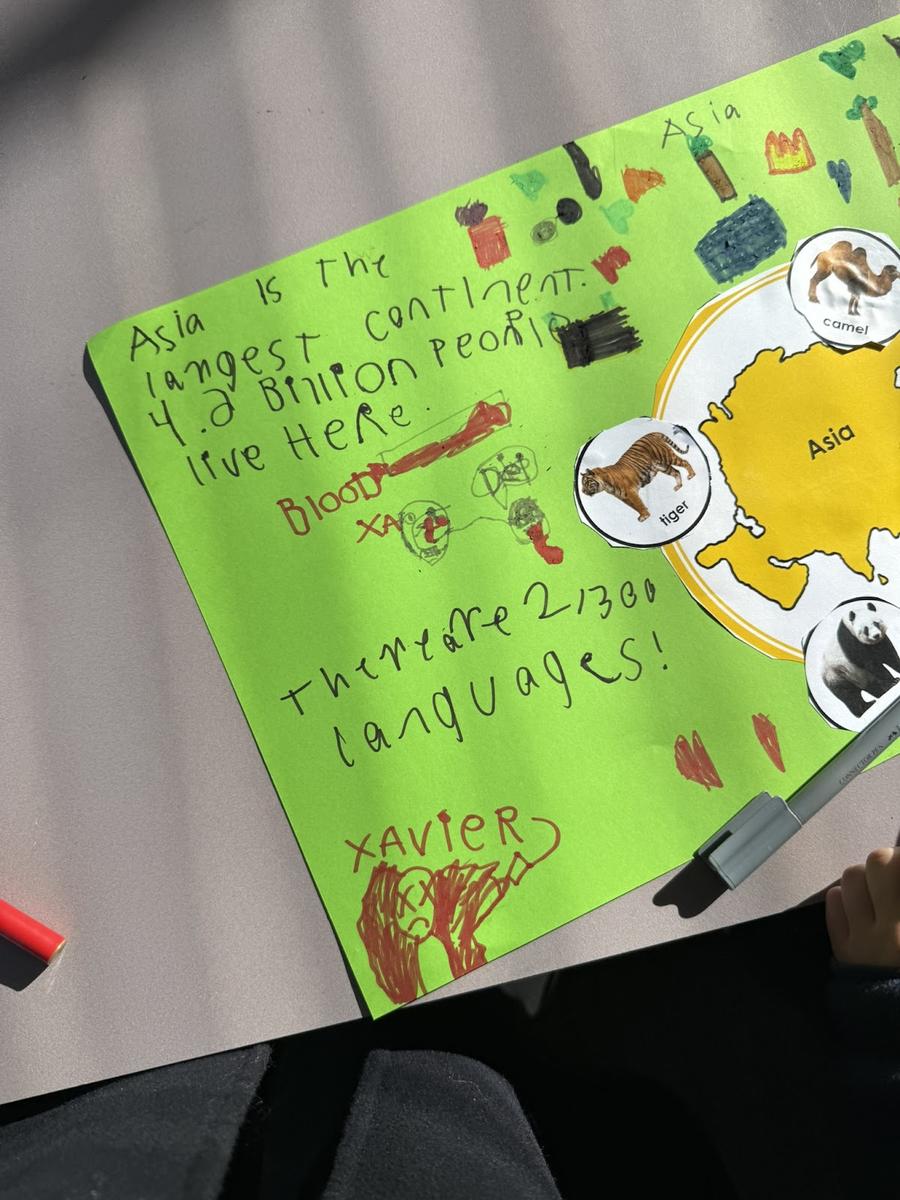 Asia
Asia Is The
largest continent.
4.2 Billion People
live HERE.
BlooD
XA
There are 2,300
languages!
XAViER
camel
Asia
tiger